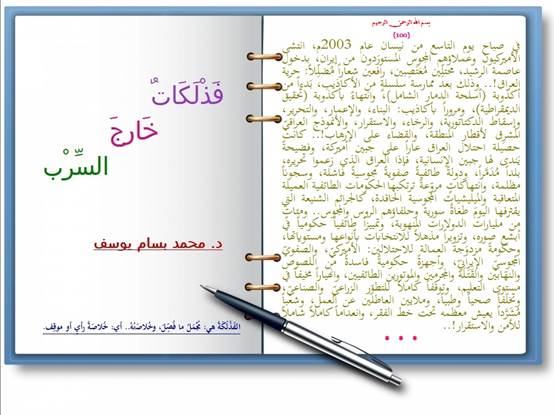 بسم الله الرحمن الرحيم
(100)
في صباح يوم التاسع من نيسان عام 2003م، انتشى
الأميركيون وعملاؤهم المجوس المستورَدون من إيران، بدخول
عاصمة الرشيد، محتلّين مُغتَصِبين، رافعين شعاراً مُضَلِّلاً: حرية
العراق!.. وذلك بعد ممارسة سلسلةٍ من الأكاذيب، بَدءاً من
أكذوبة (أسلحة الدمار الشامل)، وانتهاءً بأكذوبة (تحقيق
الديمقراطية)، ومروراً بأكاذيب: البناء، والإعمار، والتحرير،
وإسقاط الدكتاتورية، والرخاء، والاستقرار، والأنموذج العراقيّ
المشرق لأقطار المنطقة، والقضاء على الإرهاب!.. كانت
حصيلة احتلال العراق عاراً على جبين أميركة، وفضيحةً
يَندى لها جبين الإنسانية، فإذا العراق الذي زعموا تحريره،
بلداً مُدَمَّراً، ودولة طائفية صفوية مجوسية فاشلة، وسجوناً
مظلمة، وانتهاكاتٍ مروّعةً ترتكبها الحكومات الطائفية العميلة
المتعاقبة والميليشيات المجوسية الحاقدة، كالجرائم الشنيعة التي
يقترفها اليوم طغاةُ سورية وحلفاؤهم الروس والمجوس.. ومئاتٍ
من مليارات الدولارات المنهوبة، وتمييزاً طائفياً حكومياً في
أبشع صوره، وتزويراً مذهلاً للانتخابات بأنواعها ومستوياتها،
وحكومةً مزدوجة العمالة للاحتلالين: الأميركيّ، والصفويّ
المجوسيّ الإيرانيّ، وأجهزةً حكوميةً فاسدةً من اللصوص
والنهّابين والقَتَلَة والمجرمين والموتورين الطائفيين، وانهياراً مخيفاً في
مستوى التعليم، وتوقفاً كاملاً للتطور الزراعيّ والصناعيّ،
وتخلّفاً صحياً وطبياً، وملايين العاطلين عن العمل، وشعباً
مُشَرَّداً يعيش معظمه تحت خط الفقر، وانعداماً كاملاً شاملاً
للأمن والاستقرار!..
* * *
فَذْلَكَاتٌ
خَارِجَ
السِّرْب
د. محمد بسام يوسف
الفَذْلَكَةُ هي: مُجْمَلُ ما فُصِّلَ، وخُلاصَتُهُ.. أي: خُلاصَةُ رأيٍ أو موقِف.